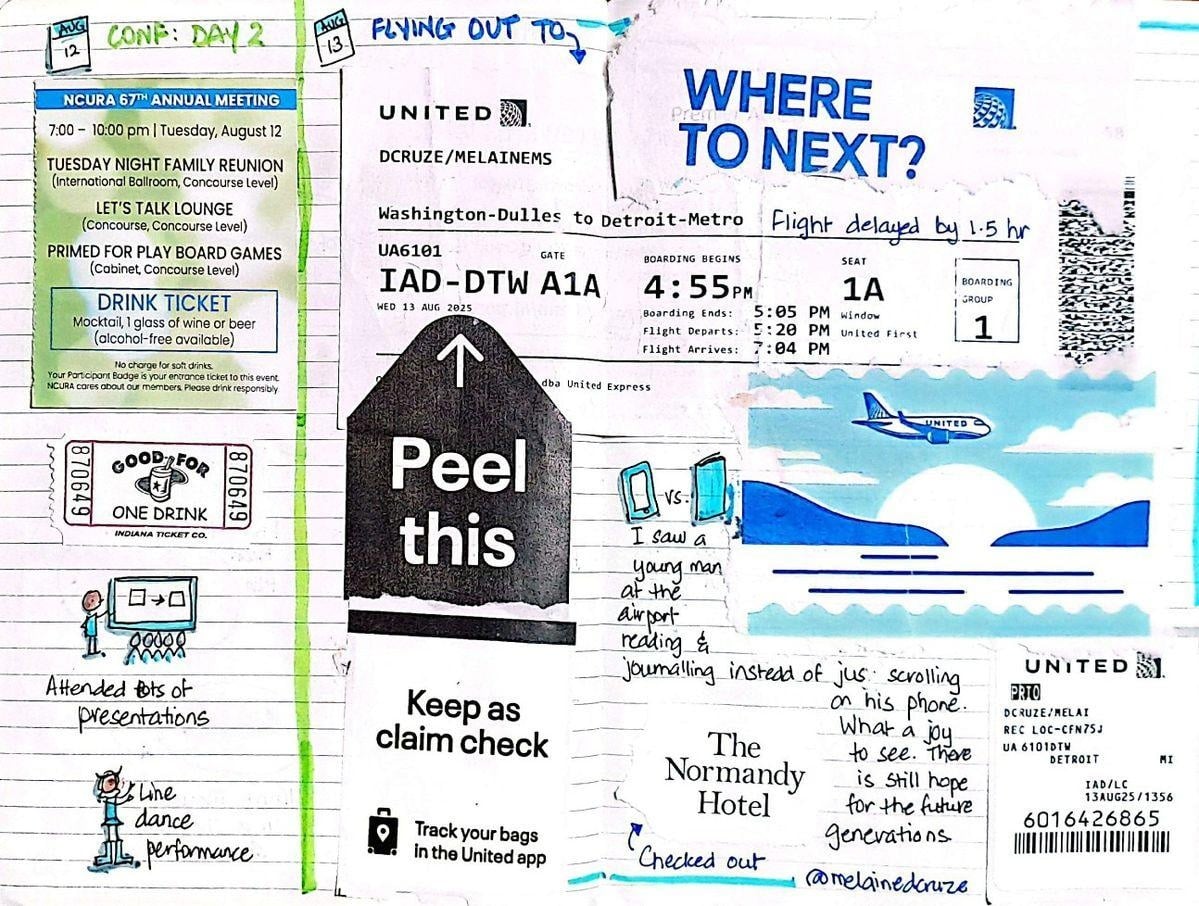 AUG
12
CONF: DAY 2
NCURA 67TH ANNUAL MEETING
7:00 – 10:00 pm | Tuesday, August 12
TUESDAY NIGHT FAMILY REUNION
(International Ballroom, Concourse Level)
LET'S TALK LOUNGE
(Concourse, Concourse Level)
PRIMED FOR PLAY BOARD GAMES
(Cabinet, Concourse Level)
DRINK TICKET
Mocktail, 1 glass of wine or beer
(alcohol-free available)
No charge for soft drinks.
Your Participant Badge is your entrance ticket to this event.
NCURA cares about our members. Please drink responsibly.
870649
GOOD FOR
ONE DRINK
870649
INDIANA TICKET CO.
Attended lots of
presentations
Line
dance
performance
AUG
13
FLYING OUT TO
UNITED
DCRUZE/MELAINEMS
WHERE
TO NEXT?
Washington-Dulles to Detroit-Metro
Flight delayed by 1.5 hr
UA6101
GATE
IAD-DTW A1A
WED 13 AUG 2025
BOARDING BEGINS
4:55PM
Boarding Ends: 5:05 PM
Flight Departs: 5:20 PM
Flight Arrives: 7:04 PM
SEAT
1A
Window
United First
BOARDING
GROUP
1
dba United Express
Peel
this
Keep as
claim check
Track your bags
in the United app
UNITED
vs.
I saw a
young man
at the
airport
reading &
journalling instead of jus scrolling
on his phone.
What a joy
to see. There
is still hope
for the future
generations
The
Normandy
Hotel
Checked out
@melainedcruze
UNITED
PRIO
DCRUZE/MELAI
REC LOC-CFN75J
UA 6101DTW
DETROIT MI
IAD/LC
13AUG25/1356
6016426865